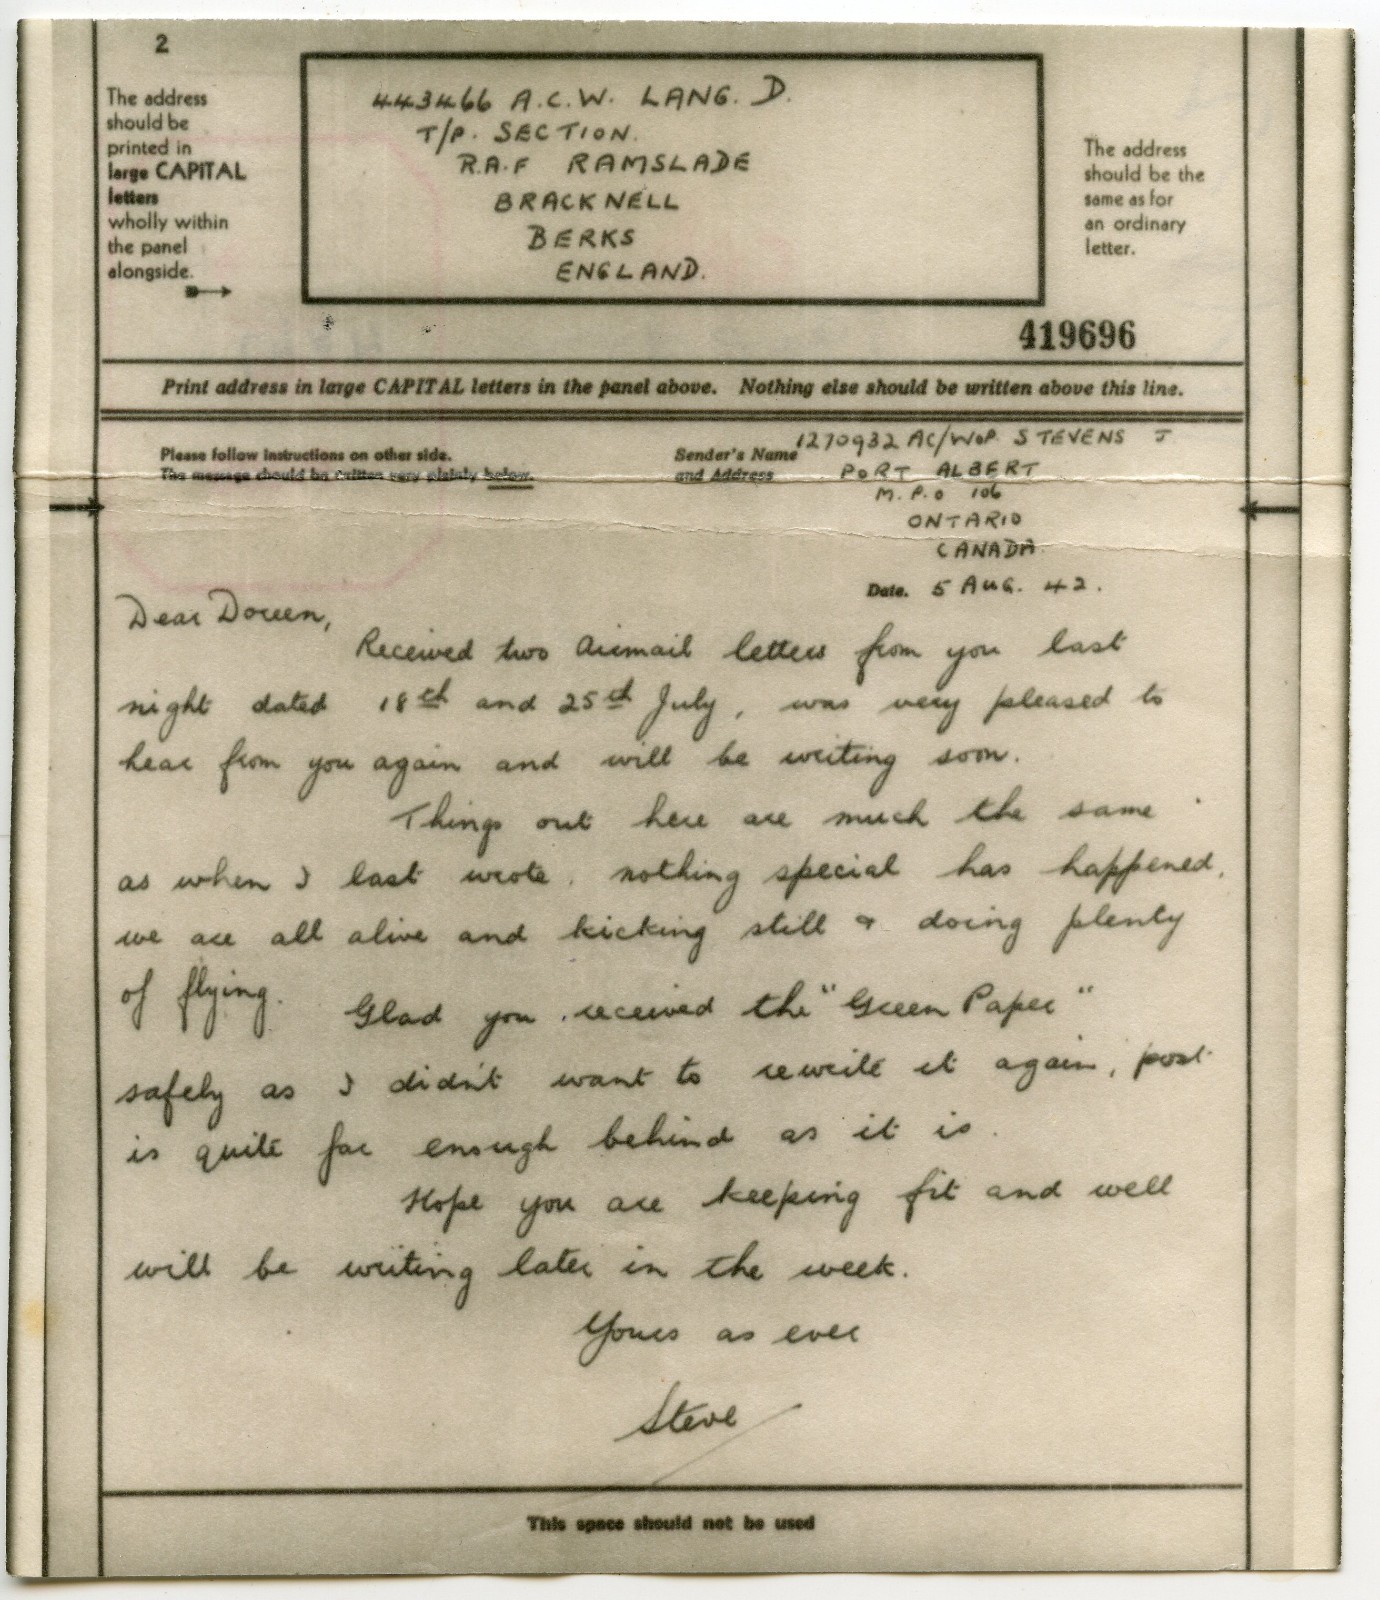 2
The address
should be
printed in
large CAPITAL
letters
wholly within
the panel
alongside.
443466 A.C.W. LANG. D.
T/P. SECTION.
R.A.F RAMSLADE
BRACKNELL
BERKS
ENGLAND.
The address
should be the
same as for
an ordinary
letter.
419696
Print address in large CAPITAL letters in the panel above. Nothing else should be written above this line.
Please follow instructions on other side.
The message should be written very plainly below.
Sender's Name
and Address
1270932 AC/WOP. STEVENS J
PORT ALBERT
M.P.O 106
ONTARIO
CANADA.
Date. 5 AUG. 42.
Dear Doreen,
Received two Airmail letters from you last
night dated 18th and 25th July, was very pleased to
hear from you again and will be writing soon.
Things out here are much the same
as when I last wrote, nothing special has happened,
we are all alive and kicking still & doing plenty
of flying.
Glad you received the "Green Paper"
safely as I didn't want to rewrite it again, post
is quite far enough behind as it is.
Hope you are keeping fit and well
will be writing later in the week.
Yours as ever
Steve
This space should not be used